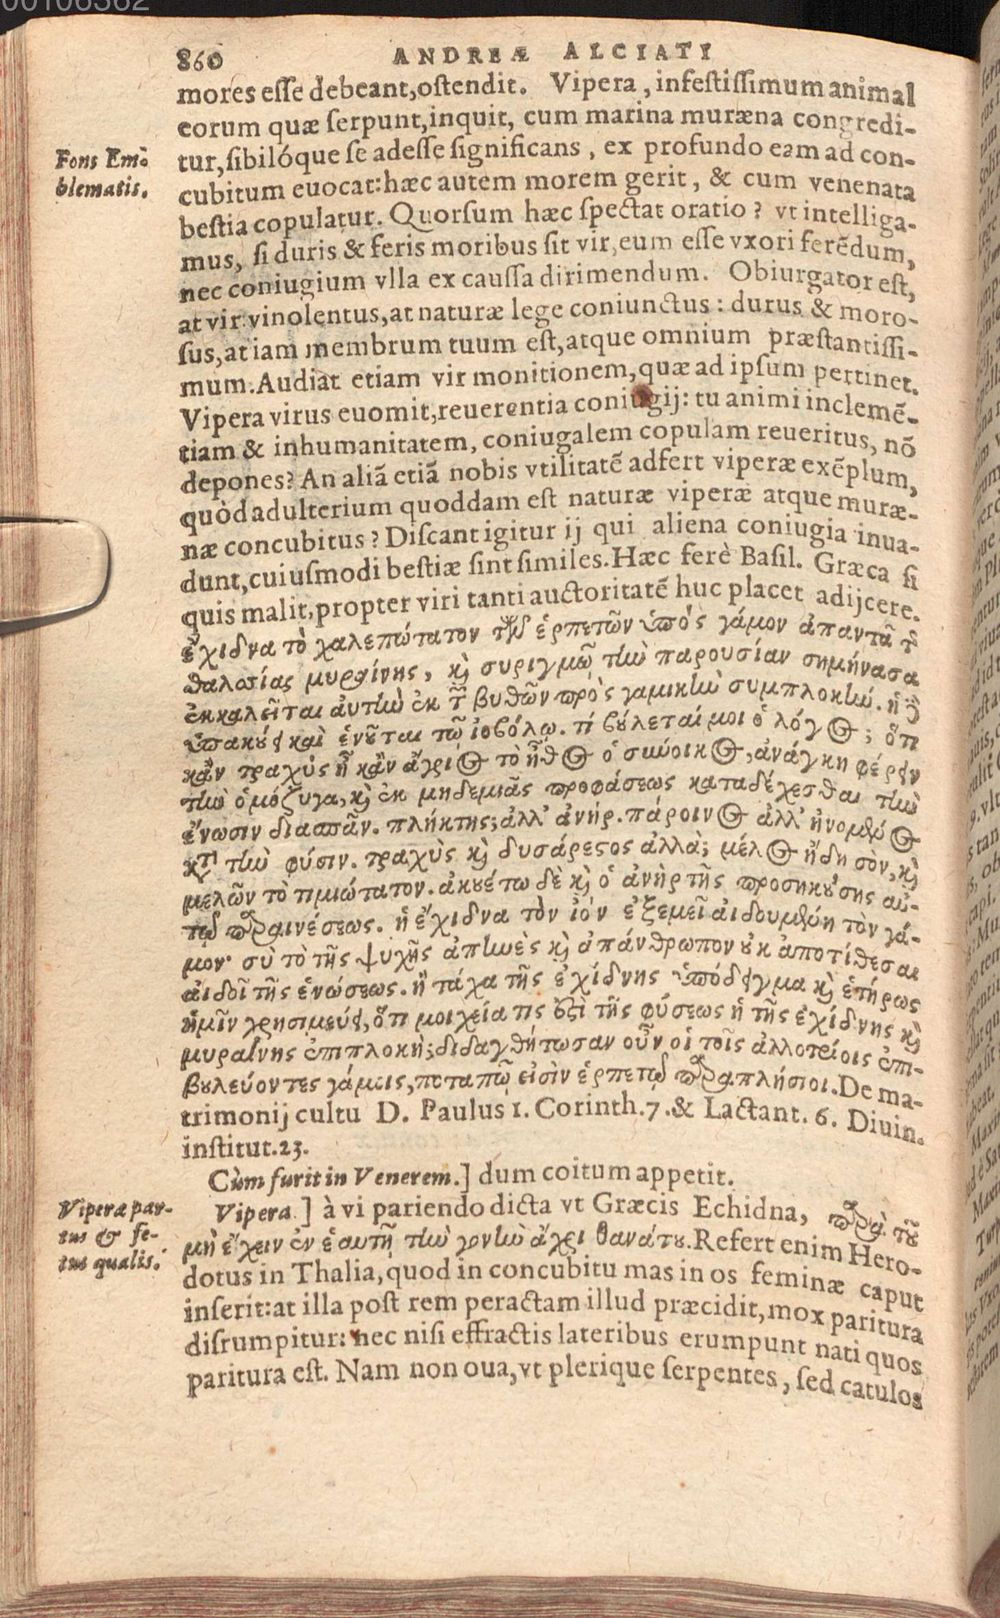 00106362
860 ANDREÆ ALCIATI
mores esse debeant, ostendit. Vipera, infestissimum animal
eorum quæ serpunt, inquit, cum marina muræna congredi-
Fons Em-
blematis.
tur, sibilóque se adesse significans, ex profundo eam ad con-
cubitum euocat: hæc autem morem gerit, & cum venenata
bestia copulatur. Quorsum hæc spectat oratio? vt intelliga-
mus, si duris & feris moribus sit vir, eum esse vxori ferẽdum,
nec coniugium vlla ex caussa dirimendum. Obiurgator est,
at vir: vinolentus, at naturæ lege coniunctus: durus & moro-
sus, at iam membrum tuum est, atque omnium præstantissi-
mum. Audiat etiam vir monitionem, quæ ad ipsum pertinet.
Vipera virus euomit, reuerentia coniugij: tu animi inclemẽ-
tiam & inhumanitatem, coniugalem copulam reueritus, nõ
depones? An aliã etiã nobis vtilitatẽ adfert viperæ exẽplum,
quòd adulterium quoddam est naturæ viperæ atque muræ-
næ concubitus? Discant igitur ij qui aliena coniugia inua-
dunt, cuiusmodi bestiæ sint similes. Hæc ferè Basil. Græca si
quis malit, propter viri tanti auctoritatẽ huc placet adijcere.
ἔχιδνα τὸ χαλεπώτατον τῶν ἑρπετῶν πρὸς γάμον ἀπαντᾷ τῆς
θαλασσίας μυραίνης, καὶ συριγμῷ τὴν παρουσίαν σημήνασα
ἐκκαλεῖται ἀυτὴν ἐκ τῶν βυθῶν πρὸς γαμικὴν συμπλοκήν. ἡ δὲ
ὑπακούει καὶ ἑνοῦται τῷ ἰοβόλῳ. τί βούλεταί μοι ὁ λόγος; ὅτι
κἂν τραχὺς ᾖ κἂν ἄγριος τὸ ἦθος ὁ σύνοικος, ἀνάγκη φέρειν
τὴν ὁμόζυγα, καὶ ἐκ μηδεμιᾶς προφάσεως καταδέχεσθαι τὴν
ἕνωσιν διασπᾶν. πλήκτης; ἀλλ' ἀνήρ. πάροινος ἀλλ' ἡνομένος
κατὰ τὴν φύσιν. τραχὺς καὶ δυσάρεστος ἀλλὰ; μέλος ἤδη σὸν, καὶ
μελῶν τὸ τιμιώτατον. ἀκουέτω δὲ καὶ ὁ ἀνὴρ τῆς προσηκούσης αὐ-
τῷ παραινέσεως. ἡ ἔχιδνα τὸν ἰόν ἐξεμεῖ αἰδουμένη τὸν γά-
μον· σὺ τὸ τῆς ψυχῆς ἀπηνὲς καὶ ἀπάνθρωπον οὐκ ἀποτίθεσαι
αἰδοῖ τῆς ἑνώσεως. ἢ τάχα τῆς ἐχίδνης ὑπόδειγμα καὶ ἑτέρως
ἡμῖν χρησιμεύει, ὅτι μοιχεία τις ἐστὶ τῆς φύσεως ἡ τῆς ἐχίδνης καὶ
μυραίνης ἐπιπλοκή; διδαχθήτωσαν οὖν οἱ τοῖς ἀλλοτρίοις ἐπι-
βουλεύοντες γάμοις, ποταπῷ εἰσὶν ἑρπετῷ παραπλήσιοι. De ma-
trimonij cultu D. Paulus 1. Corinth. 7. & Lactant. 6. Diuin.
institut. 23.
Cùm furit in Venerem.] dum coitum appetit.
Viperæ par-
tus & fe-
tus qualis.
Vipera.] à vi pariendo dicta vt Græcis Echidna, παρὰ τοῦ
μὴ ἔχειν ἐν ἑαυτῇ τὴν γονὴν ἄχρι θανάτου. Refert enim Hero-
dotus in Thalia, quod in concubitu mas in os feminæ caput
inserit: at illa post rem peractam illud præcidit, mox paritura
disrumpitur: nec nisi effractis lateribus erumpunt nati quos
paritura est. Nam non oua, vt plerique serpentes, sed catulos